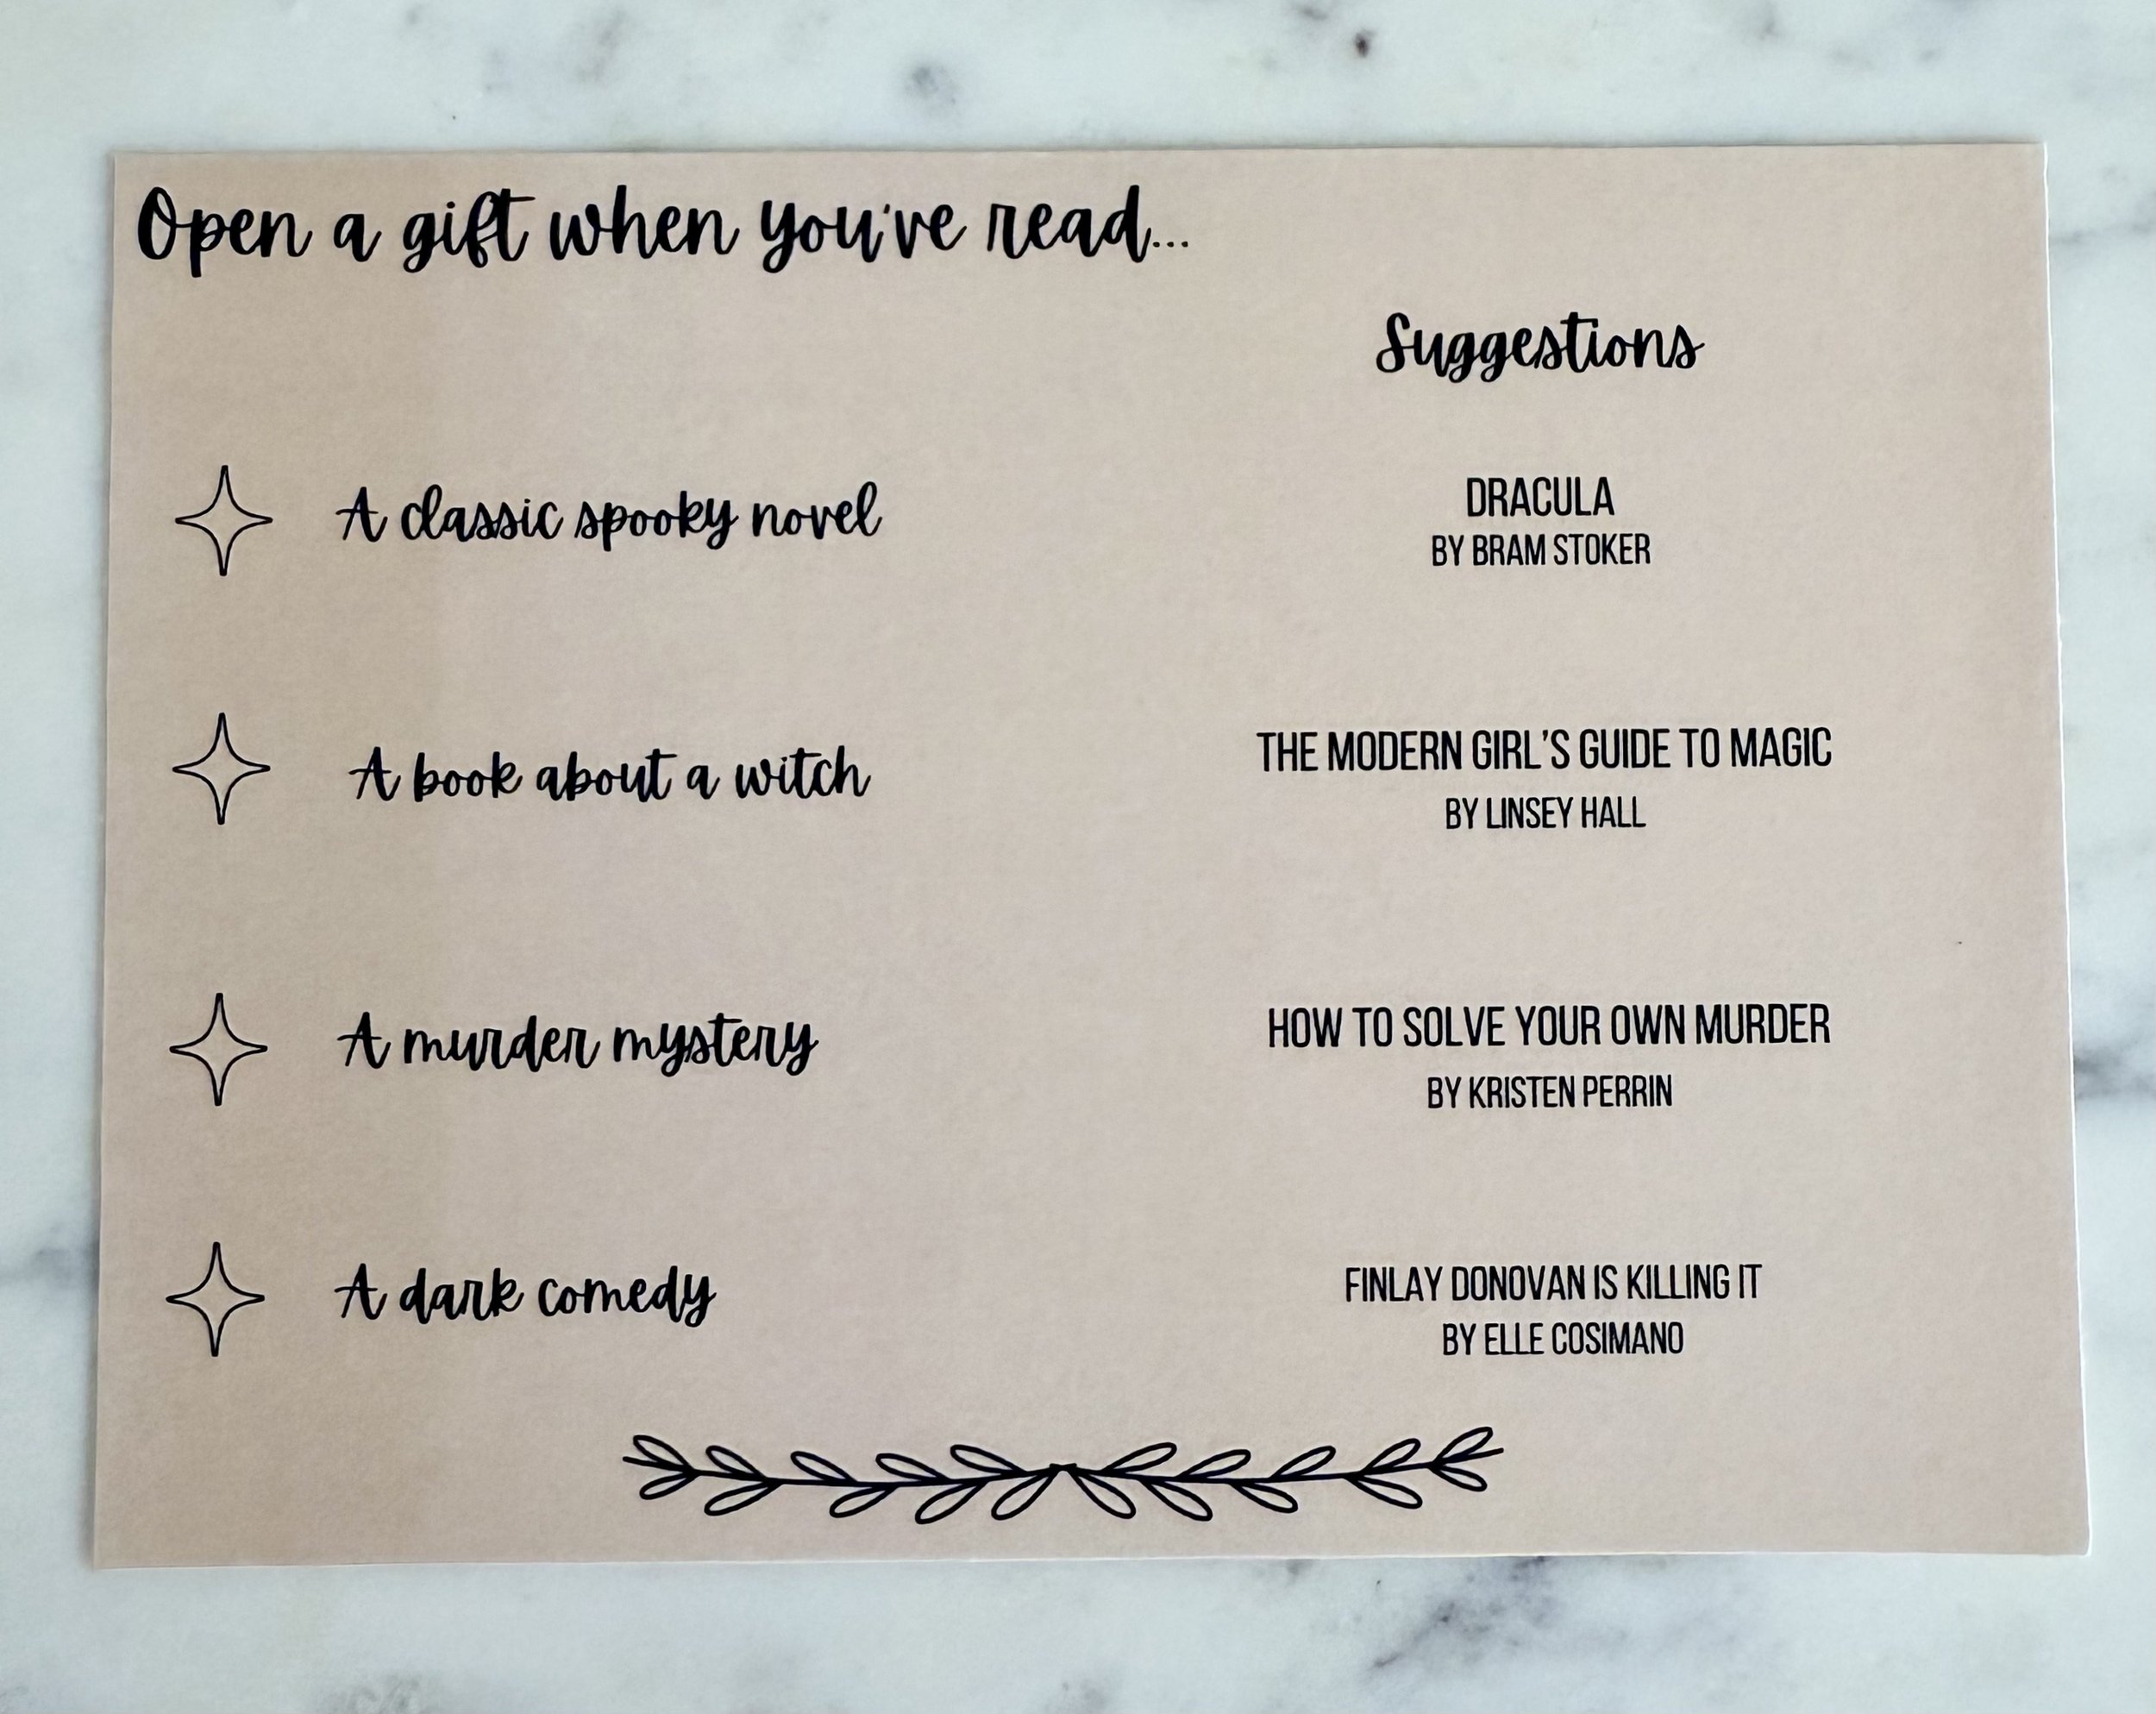 Open a gift when you've read...
Suggestions
A classic spooky novel
DRACULA
BY BRAM STOKER
A book about a witch
THE MODERN GIRL'S GUIDE TO MAGIC
BY LINSEY HALL
A murder mystery
HOW TO SOLVE YOUR OWN MURDER
BY KRISTEN PERRIN
A dark comedy
FINLAY DONOVAN IS KILLING IT
BY ELLE COSIMANO